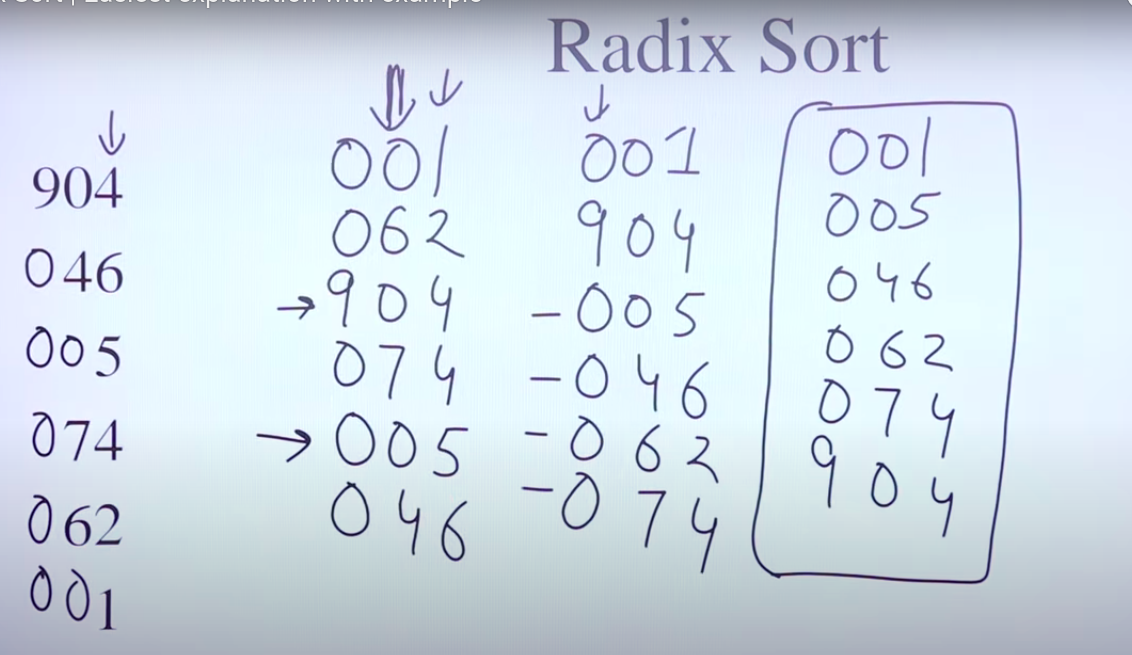 Sort | Easiest explanation with example
Radix Sort
904
046
005
074
062
001
001
062
→ 904
074
→ 005
046
001
904
- 005
- 046
- 062
- 074
001
005
046
062
074
904